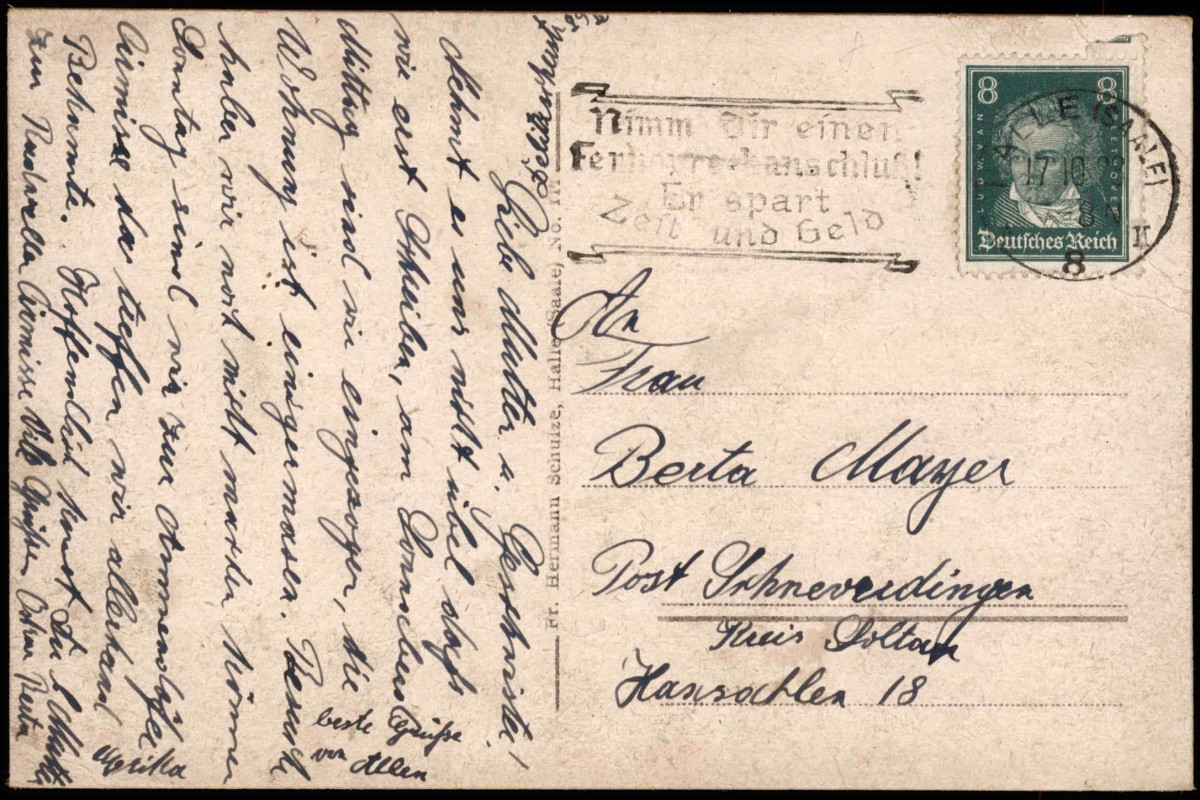 Liebe Mutter u. Geschwister!
Nehmt es uns nicht übel dass
wir erst schreiben, am Donnerstag
Mittag sind wir eingezogen, die
Wohnung ist einigermasen. Besuch
haben wir noch nicht machen können
Sonntag sind wir zur
da treffen wir allerhand
Bekannte. Hoffentlich kommst Du l. Mutter
zur Viele Grüsse
beste Grüsse
von Allen
Fr. Hermann Schulze, Halle (Saale) No.
Nimm Dir einen
Fernsprechanschluß!
Er spart
Zeit und Geld
8 8
LUDW. VAN BEETHOVEN
Deutsches Reich
HALLE (SAALE)
17.10.
8
An
Frau
Berta Mayer
Post Schneverdingen
Kreis Soltau
Hansahlen 18